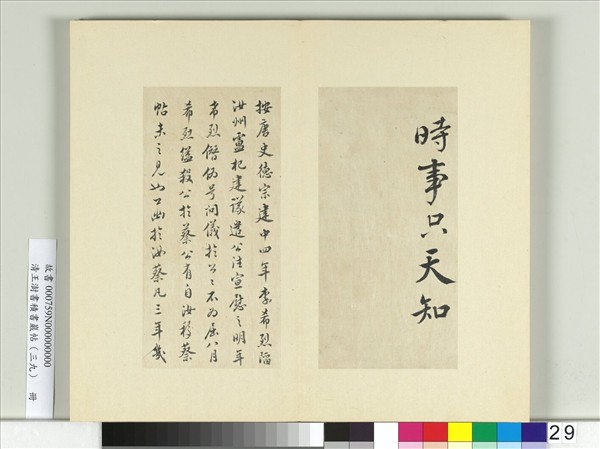 時事只天知
按唐史德宗建中四年李希烈陷
汝州盧杞建議遣公往宣慰之明年
希烈僭偽号問儀於公公不為屈八月
希烈縊殺公於蔡公有自汝移蔡
帖未之見如公幽於汝蔡凡三年幾
故書 000759N000000000
清王澍書積書巖帖(三九) 冊
29